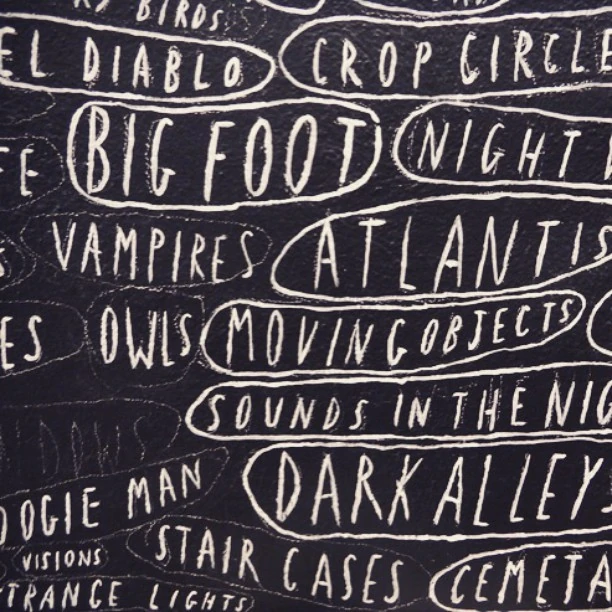 BIRDS
EL DIABLO CROP CIRCLE
FE BIG FOOT NIGHT
VAMPIRES ATLANTIS
ES OWLS MOVING OBJECTS
SOUNDS IN THE NIG
OOGIE MAN DARK ALLEYS
VISIONS STAIR CASES CEMETA
TRANCE LIGHTS